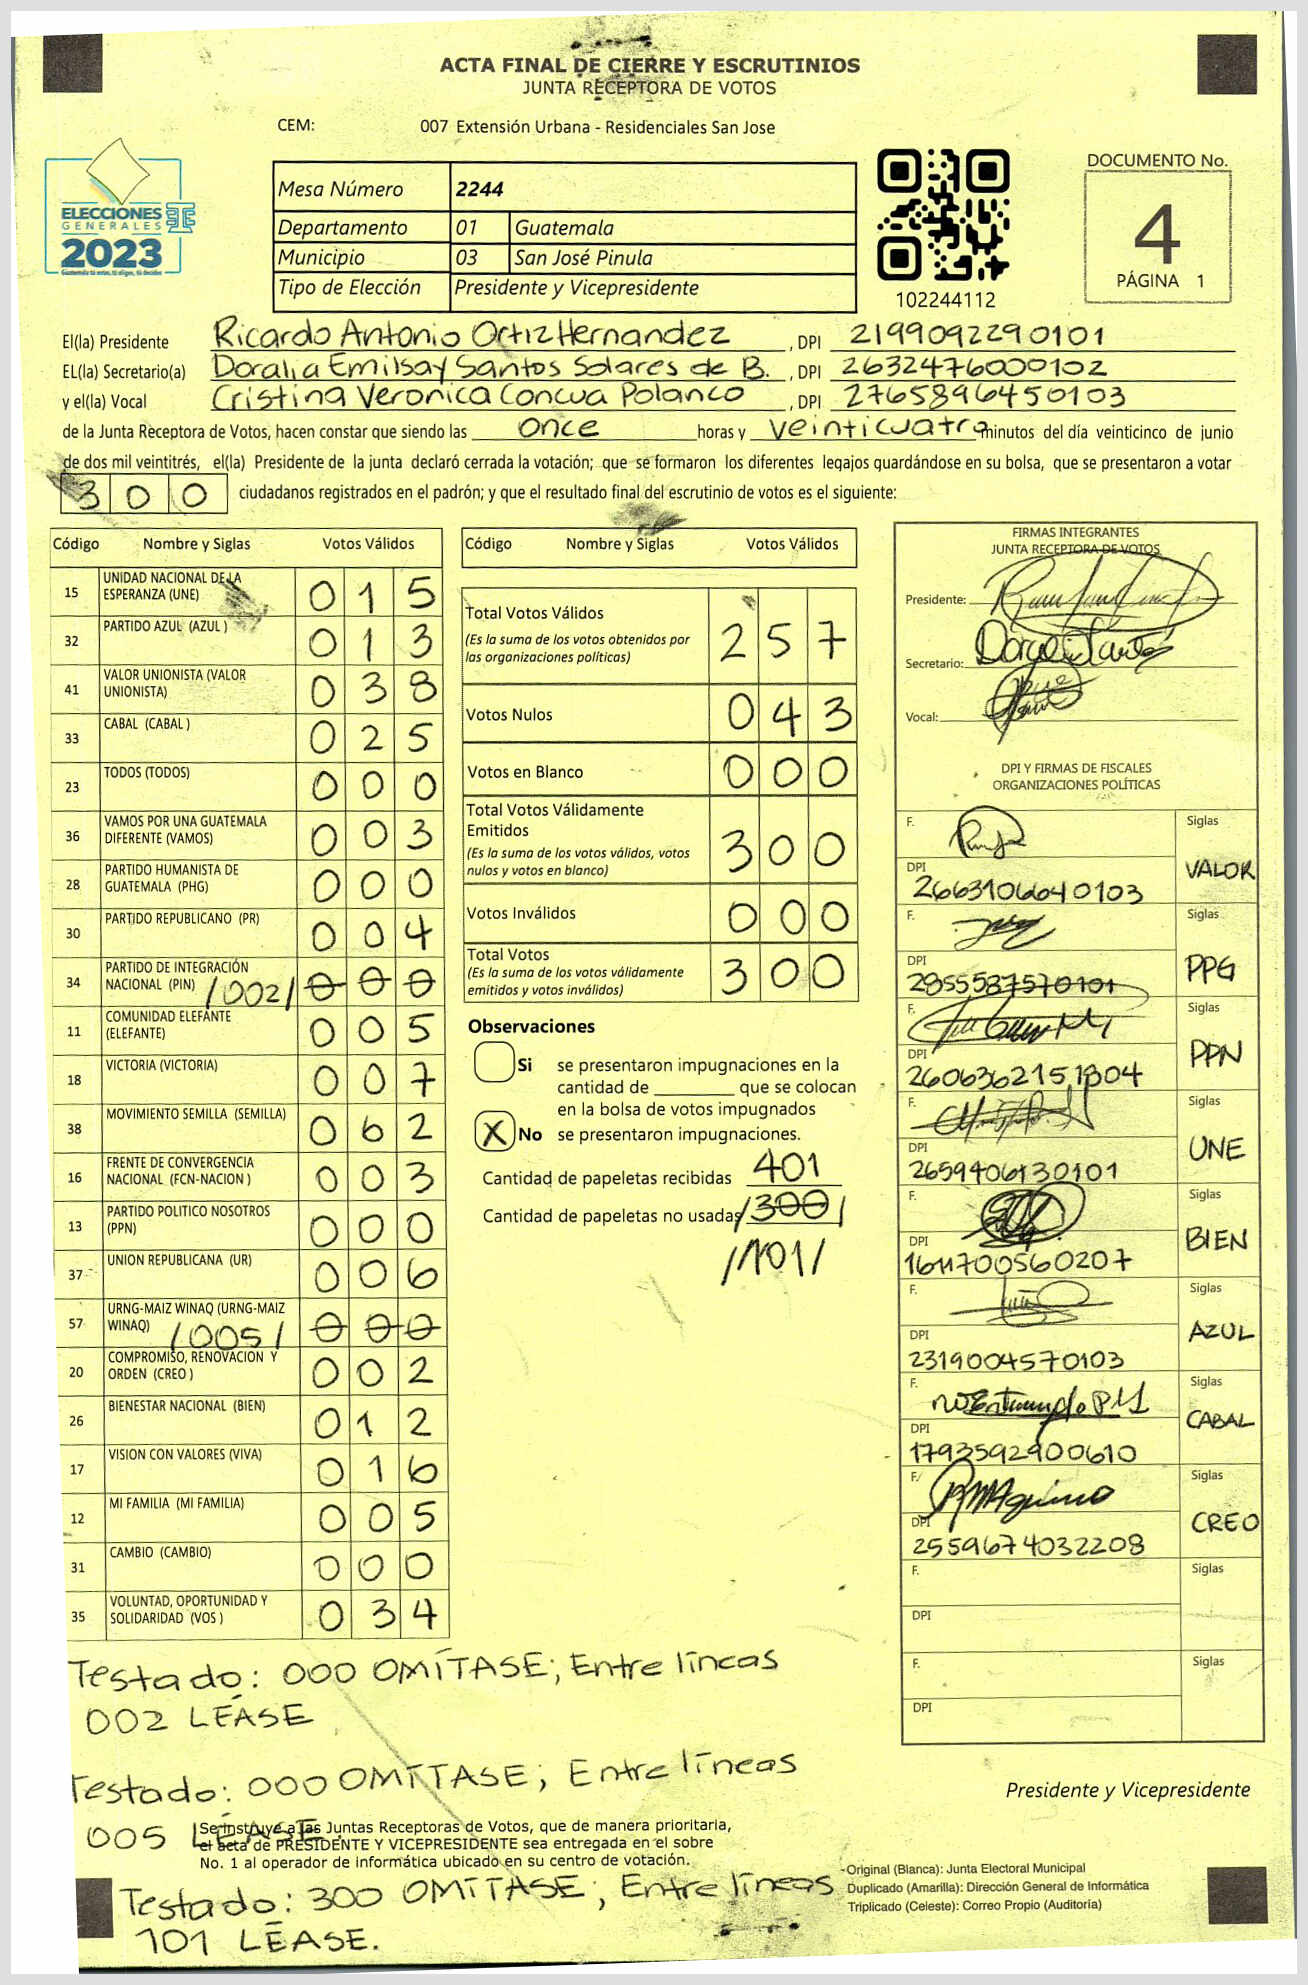 ACTA FINAL DE CIERRE Y ESCRUTINIOS
JUNTA RECEPTORA DE VOTOS
CEM: 007 Extensión Urbana - Residenciales San Jose
ELECCIONES
GENERALES
2023
Guatemala tú eres, tú eliges, tú decides
Mesa Número 2244
Departamento 01 Guatemala
Municipio 03 San José Pinula
Tipo de Elección Presidente y Vicepresidente
102244112
DOCUMENTO No.
4
PÁGINA 1
El(la) Presidente Ricardo Antonio Ortiz Hernandez, DPI 2199092290101
EL(la) Secretario(a) Doralia Emilsay Santos Solares de B., DPI 2632476000102
y el(la) Vocal Cristina Veronica Concua Polanco, DPI 2765896450103
de la Junta Receptora de Votos, hacen constar que siendo las once horas y veinticuatro minutos del día veinticinco de junio
de dos mil veintitrés, el(la) Presidente de la junta declaró cerrada la votación; que se formaron los diferentes legajos guardándose en su bolsa, que se presentaron a votar
300 ciudadanos registrados en el padrón; y que el resultado final del escrutinio de votos es el siguiente:
Código Nombre y Siglas Votos Válidos
15 UNIDAD NACIONAL DE LA ESPERANZA (UNE) 015
32 PARTIDO AZUL (AZUL ) 013
41 VALOR UNIONISTA (VALOR UNIONISTA) 038
33 CABAL (CABAL ) 025
23 TODOS (TODOS) 000
36 VAMOS POR UNA GUATEMALA DIFERENTE (VAMOS) 003
28 PARTIDO HUMANISTA DE GUATEMALA (PHG) 000
30 PARTIDO REPUBLICANO (PR) 004
34 PARTIDO DE INTEGRACIÓN NACIONAL (PIN) /002/ 000
11 COMUNIDAD ELEFANTE (ELEFANTE) 005
18 VICTORIA (VICTORIA) 007
38 MOVIMIENTO SEMILLA (SEMILLA) 062
16 FRENTE DE CONVERGENCIA NACIONAL (FCN-NACION ) 003
13 PARTIDO POLITICO NOSOTROS (PPN) 000
37 UNION REPUBLICANA (UR) 006
57 URNG-MAIZ WINAQ (URNG-MAIZ WINAQ) /005/ 000
20 COMPROMISO, RENOVACION Y ORDEN (CREO ) 002
26 BIENESTAR NACIONAL (BIEN) 012
17 VISION CON VALORES (VIVA) 016
12 MI FAMILIA (MI FAMILIA) 005
31 CAMBIO (CAMBIO) 000
35 VOLUNTAD, OPORTUNIDAD Y SOLIDARIDAD (VOS ) 034
Código Nombre y Siglas Votos Válidos
Total Votos Válidos 257
(Es la suma de los votos obtenidos por
las organizaciones políticas)
Votos Nulos 043
Votos en Blanco 000
Total Votos Válidamente
Emitidos 300
(Es la suma de los votos válidos, votos
nulos y votos en blanco)
Votos Inválidos 000
Total Votos 300
(Es la suma de los votos válidamente
emitidos y votos inválidos)
Observaciones
Si se presentaron impugnaciones en la
cantidad de ________ que se colocan
en la bolsa de votos impugnados
X No se presentaron impugnaciones.
Cantidad de papeletas recibidas 401
Cantidad de papeletas no usadas /300/
/101/
FIRMAS INTEGRANTES
JUNTA RECEPTORA DE VOTOS
Presidente:
Secretario:
Vocal:
DPI Y FIRMAS DE FISCALES
ORGANIZACIONES POLÍTICAS
F. Siglas
DPI 2663106640103 VALOR
F. Siglas
DPI 2855587570101 PPG
F. Siglas
DPI 2606362151804 PPN
F. Siglas
DPI 2659406130101 UNE
F. Siglas
DPI 1611700560207 BIEN
F. Siglas
DPI 2319004570103 AZUL
F. Siglas
DPI 1793592900610 CABAL
F. Siglas
DPI 2559674032208 CREO
F. Siglas
DPI
F. Siglas
DPI
Testado: 000 OMÍTASE; Entre líneas
002 LÉASE
Testado: 000 OMÍTASE; Entre líneas
005 LÉASE.
Presidente y Vicepresidente
Se instruye a las Juntas Receptoras de Votos, que de manera prioritaria,
el acta de PRESIDENTE Y VICEPRESIDENTE sea entregada en el sobre
No. 1 al operador de informática ubicado en su centro de votación.
Testado: 300 OMÍTASE; Entre líneas
101 LÉASE.
Original (Blanca): Junta Electoral Municipal
Duplicado (Amarilla): Dirección General de Informática
Triplicado (Celeste): Correo Propio (Auditoría)